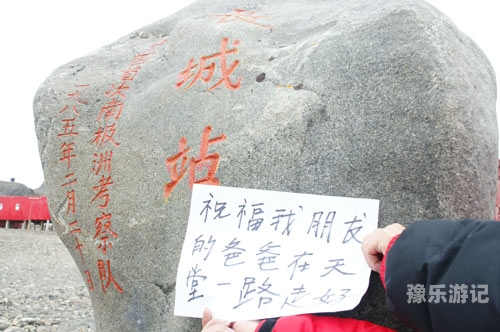 长城站
南极洲考察队
一九八五年二月二十日
祝福我朋友
的爸爸在天
堂一路走好
豫乐游记